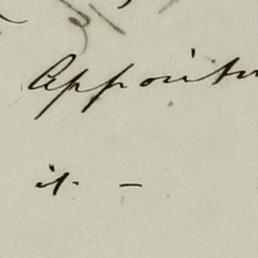 Appointm
it. —